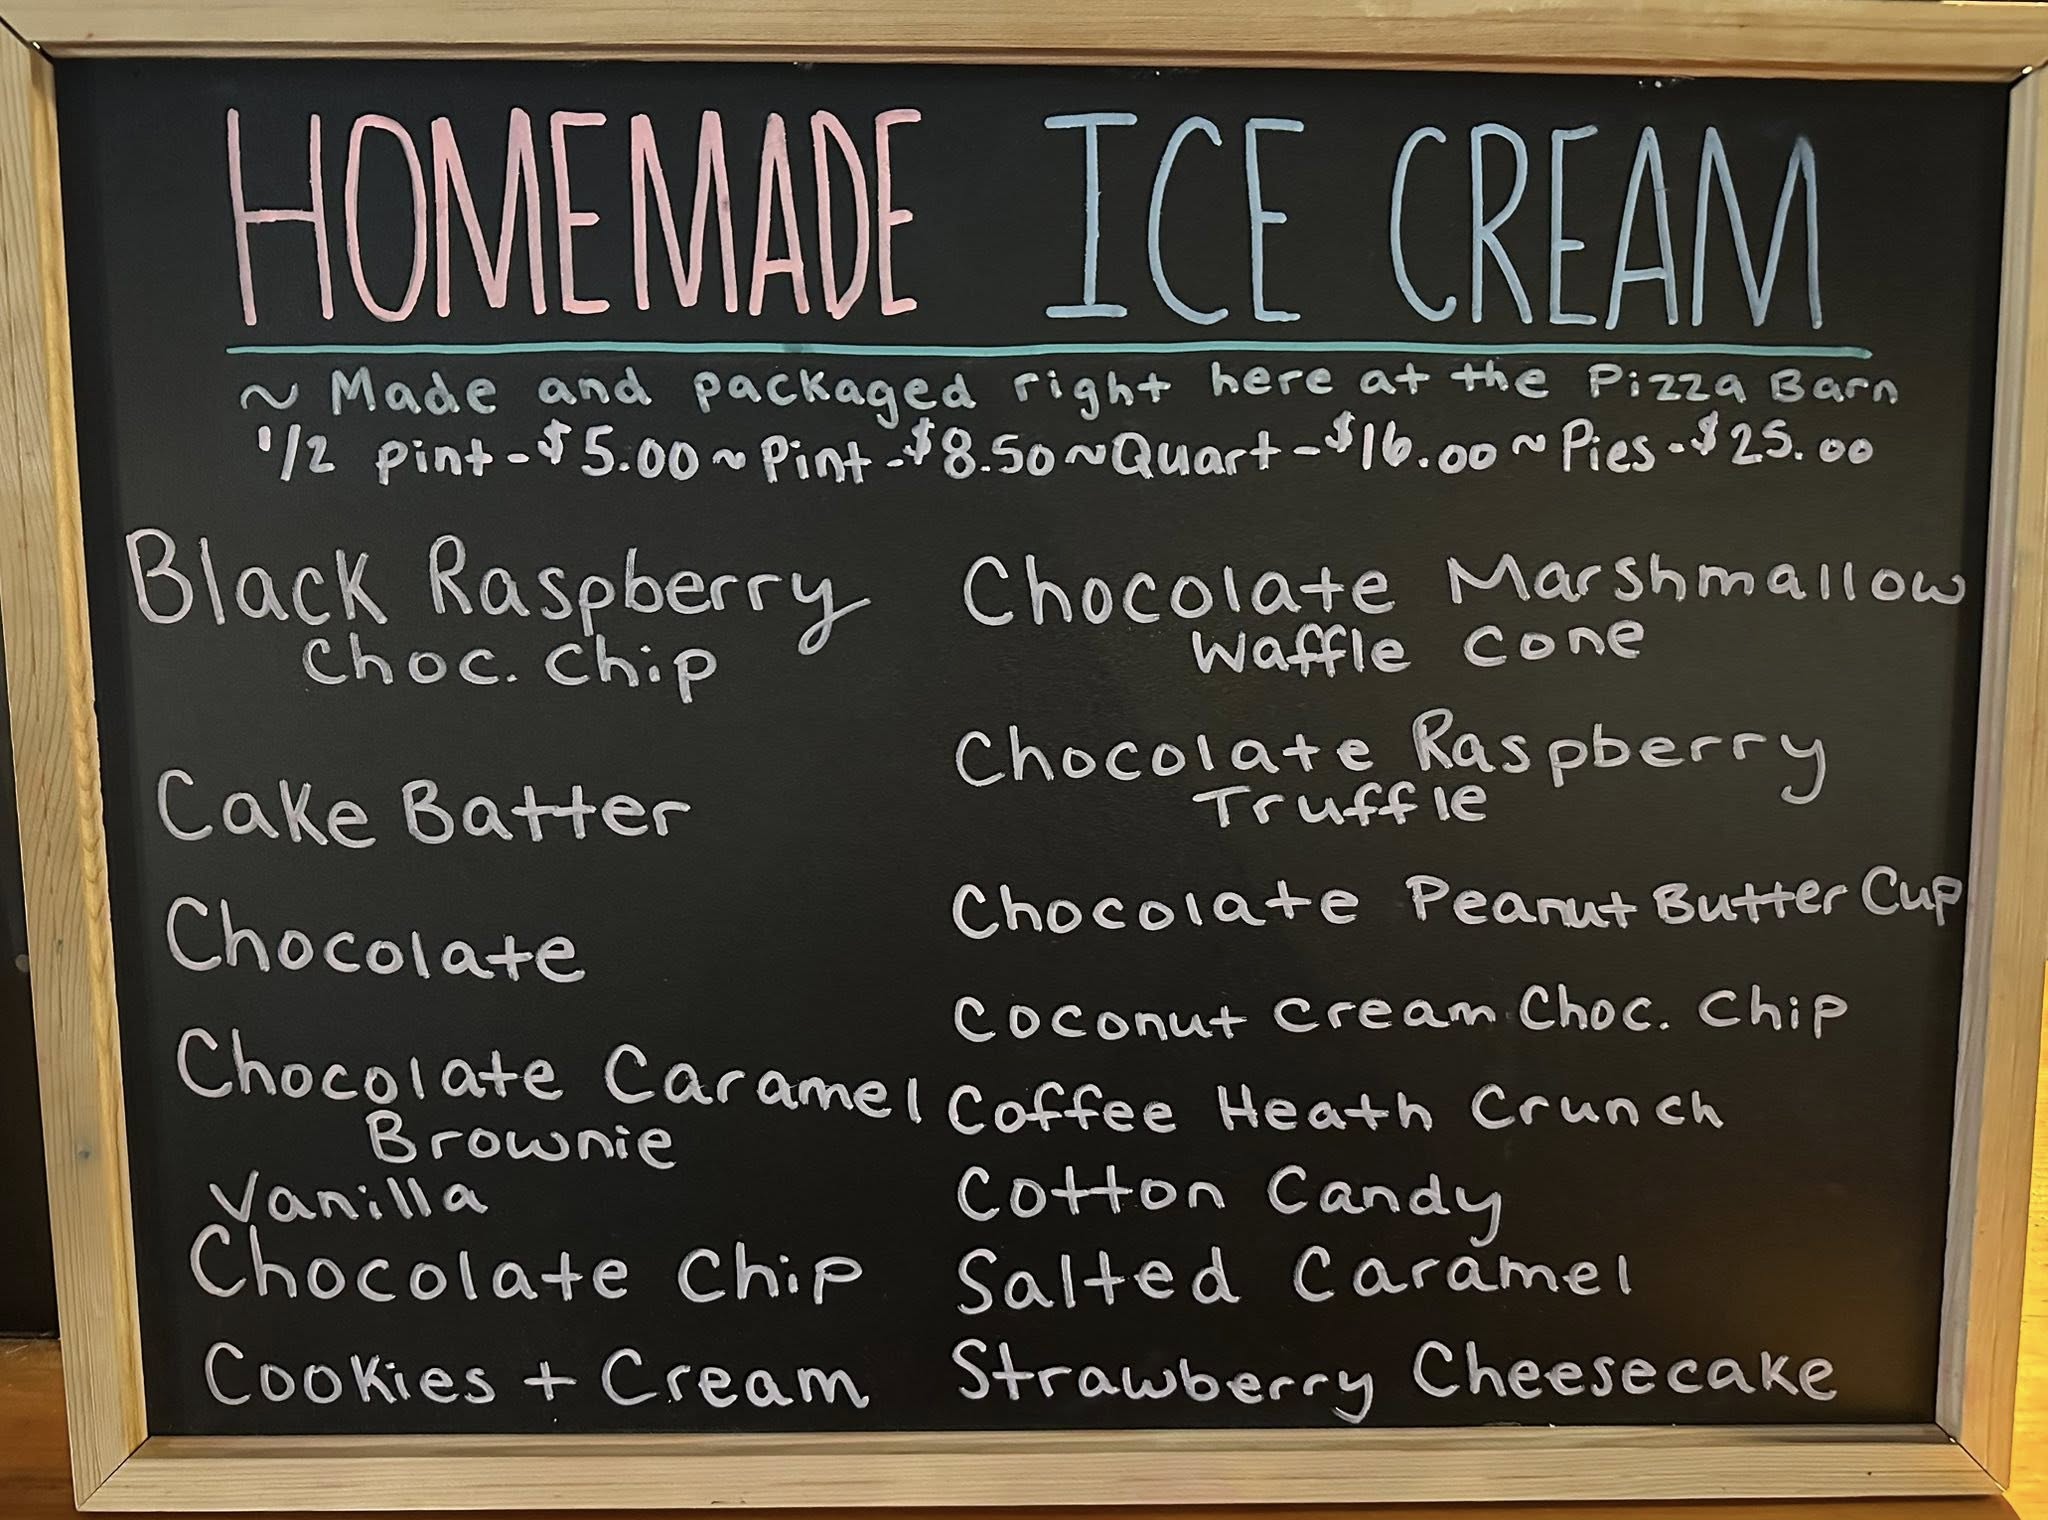 HOMEMADE ICE CREAM
~ Made and packaged right here at the Pizza Barn
1/2 pint - $5.00 ~ Pint - $8.50 ~ Quart - $16.00 ~ Pies - $25.00
Black Raspberry
Choc. Chip
Cake Batter
Chocolate
Chocolate Caramel
Brownie
Vanilla
Chocolate Chip
Cookies + Cream
Chocolate Marshmallow
Waffle Cone
Chocolate Raspberry
Truffle
Chocolate Peanut Butter Cup
Coconut Cream Choc. Chip
Coffee Heath Crunch
Cotton Candy
Salted Caramel
Strawberry Cheesecake